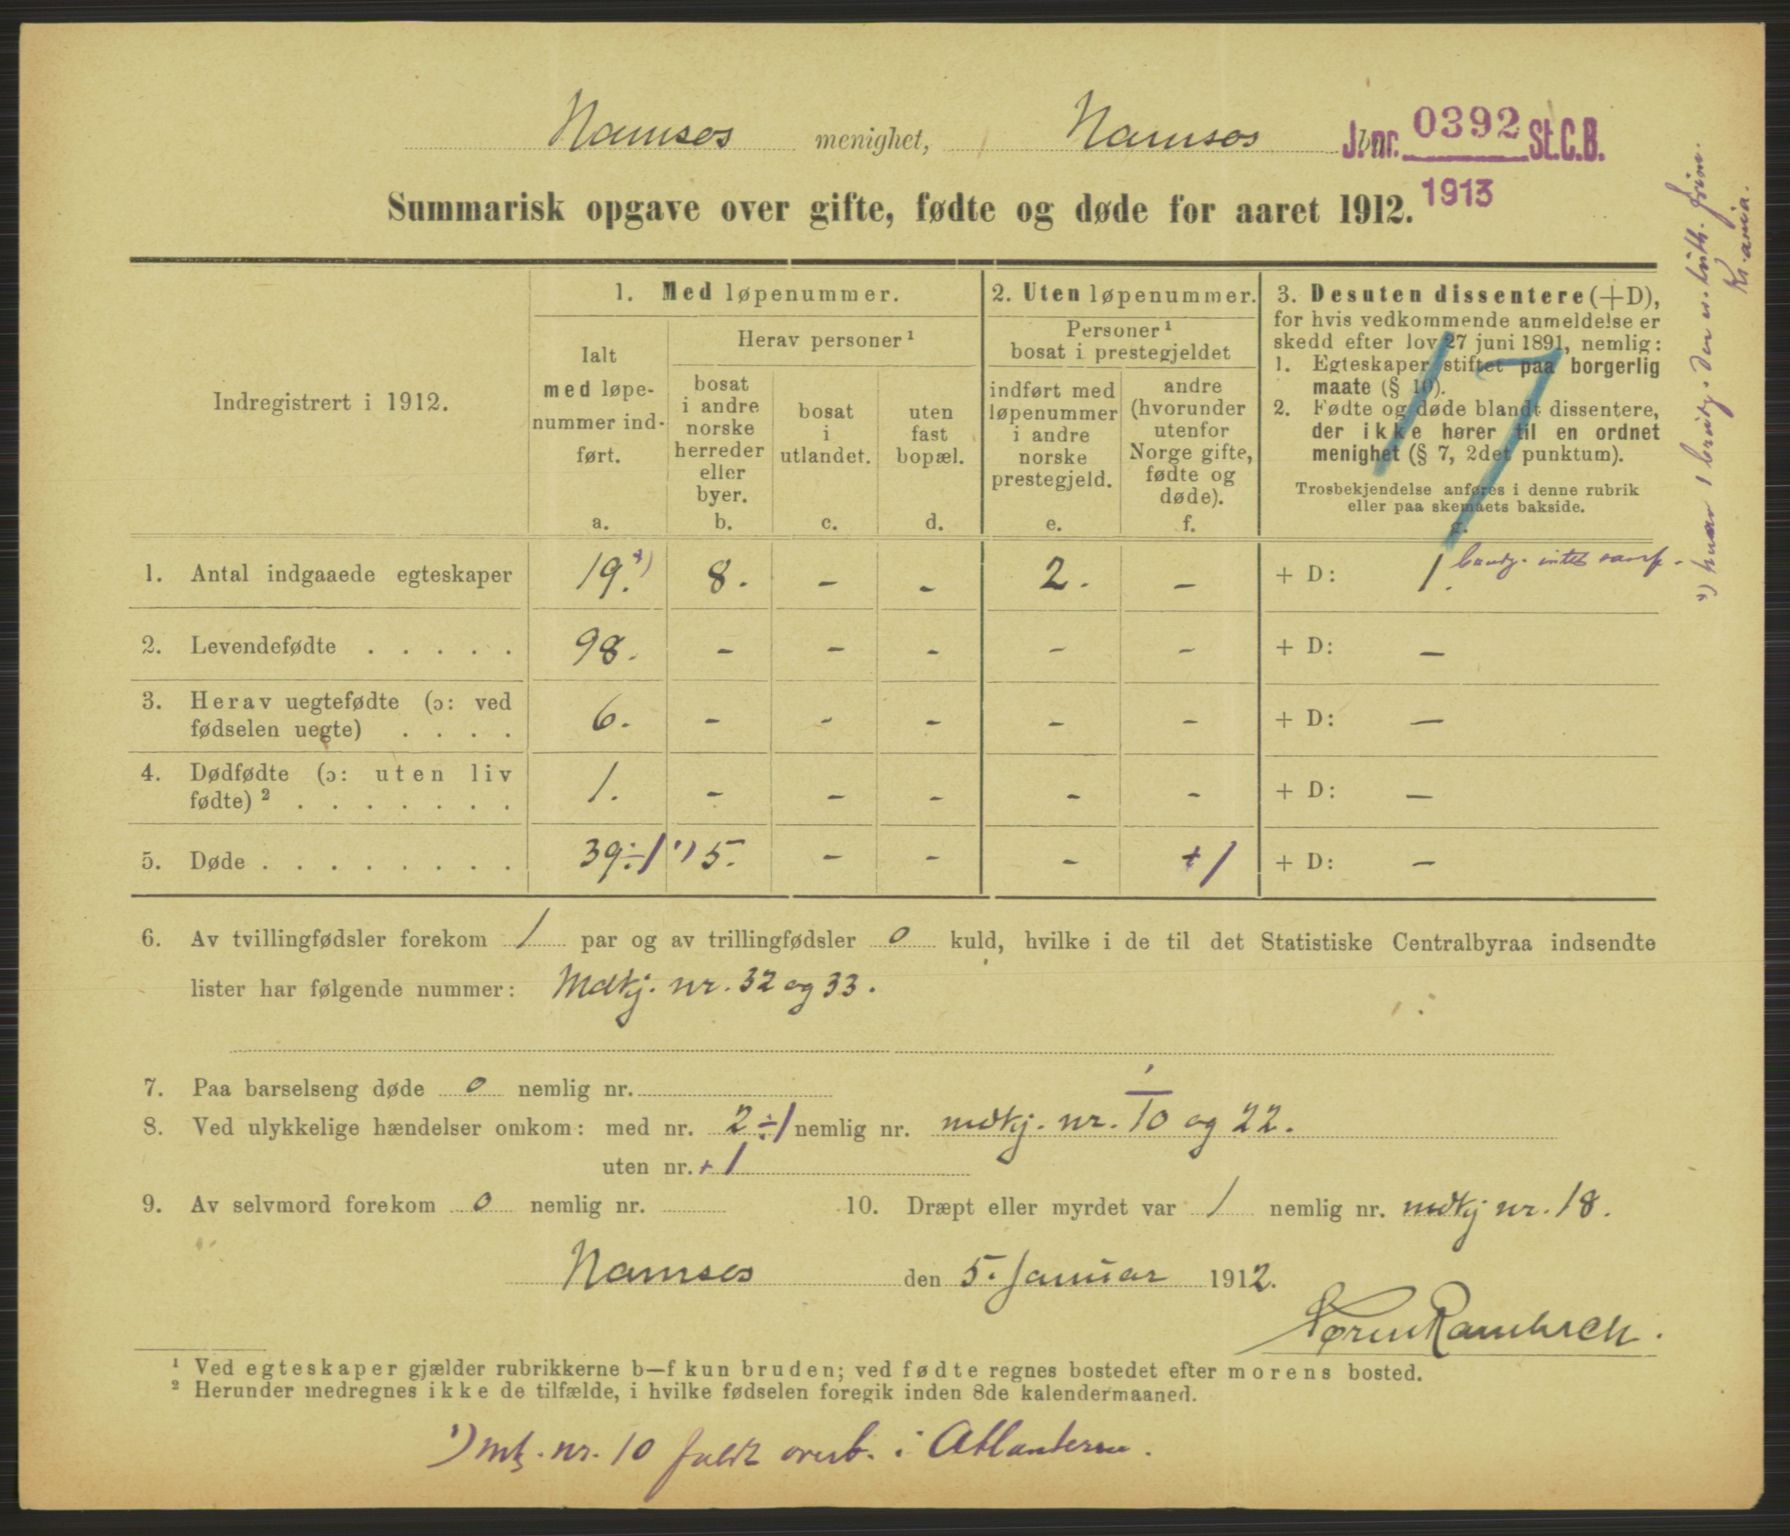 Namsos menighet, Namsos J.nr. 0392 St.C.B.
1913
Summarisk opgave over gifte, fødte og døde for aaret 1912.
Indregistrert i 1912.
1. Med løpenummer.
Ialt
med løpe-
nummer ind-
ført.
a.
Herav personer ¹
bosat
i andre
norske
herreder
eller
byer.
b.
bosat
i
utlandet.
c.
uten
fast
bopæl.
d.
2. Uten løpenummer.
Personer ¹
bosat i prestegjeldet
indført med
løpenummer
i andre
norske
prestegjeld.
e.
andre
(hvorunder
utenfor
Norge gifte,
fødte og
døde).
f.
3. Desuten dissentere (+D),
for hvis vedkommende anmeldelse er
skedd efter lov 27 juni 1891, nemlig:
1. Egteskaper stiftet paa borgerlig
maate (§ 10).
2. Fødte og døde blandt dissentere,
der ikke hører til en ordnet
menighet (§ 7, 2det punktum).
Trosbekjendelse anføres i denne rubrik
eller paa skemaets bakside.
g.
17
1. Antal indgaaede egteskaper 19. *) 8. - - 2. - + D: 1.
2. Levendefødte . . . . . 98. - - - - - + D: —
3. Herav uegtefødte (ɔ: ved
fødselen uegte) . . . . 6. - - - - - + D: —
4. Dødfødte (ɔ: uten liv
fødte) ² . . . . . . . 1. - - - - - + D: —
5. Døde . . . . . . . . 39 ÷1 ¹) 5. - - - +1 + D: —
6. Av tvillingfødsler forekom 1 par og av trillingfødsler 0 kuld, hvilke i de til det Statistiske Centralbyraa indsendte
lister har følgende nummer: Mdkj. nr. 32 og 33.
7. Paa barselseng døde 0 nemlig nr.
8. Ved ulykkelige hændelser omkom: med nr. 2 ÷1 nemlig nr. mdkj. nr. 10 og 22.
uten nr. + 1
9. Av selvmord forekom 0 nemlig nr.
10. Dræpt eller myrdet var 1 nemlig nr. mdkj nr. 18.
Namsos den 5. Januar 1912.
¹ Ved egteskaper gjælder rubrikkerne b—f kun bruden; ved fødte regnes bostedet efter morens bosted.
² Herunder medregnes ikke de tilfælde, i hvilke fødselen foregik inden 8de kalendermaaned.
¹) mk. nr. 10 faldt overb. i Atlanteren.